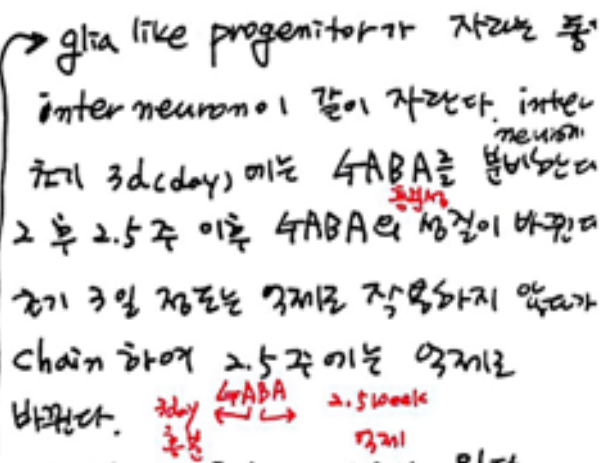 glia like progenitor가 자라는 동
interneuron이 같이 자란다. inter
neuron에
초기 3d(day)에는 GABA를 분비한다
흥분성
그 후 2.5주 이후 GABA의 성질이 바뀐다
초기 3일 정도는 억제로 작용하지 않다가
Chain하여 2.5주에는 억제로
바뀐다.
3day GABA 2.5week
흥분 억제